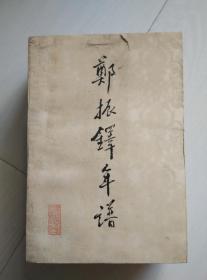 鄭振鐸年譜